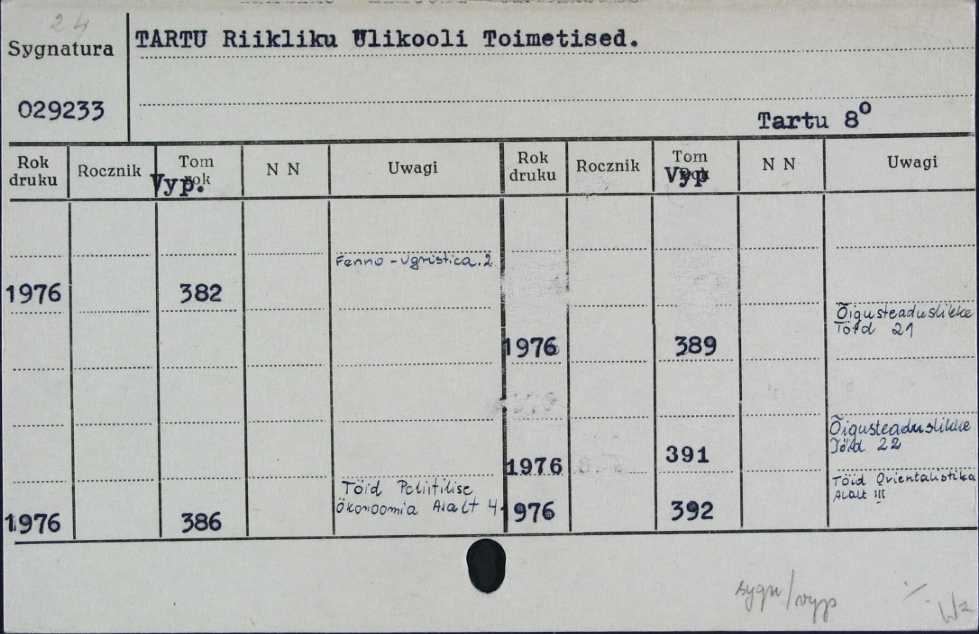 24
Sygnatura
TARTU Riikliku Ulikooli Toimetised.
029233
Tartu 8º
Rok druku Rocznik Tom rok N N Uwagi Rok druku Rocznik Tom N N Uwagi
Vyp. Vyp
Fenno-Ugristica.2
1976 382
Õigusteaduslikke
Tõid 21
1976 389
Õigusteaduslikke
Tõid 22
1976 391
Töid Poliitilise
ökonoomia Alalt 4
1976 386
Töid Orientalistika
Alalt III
1976 392
sygn/vyp